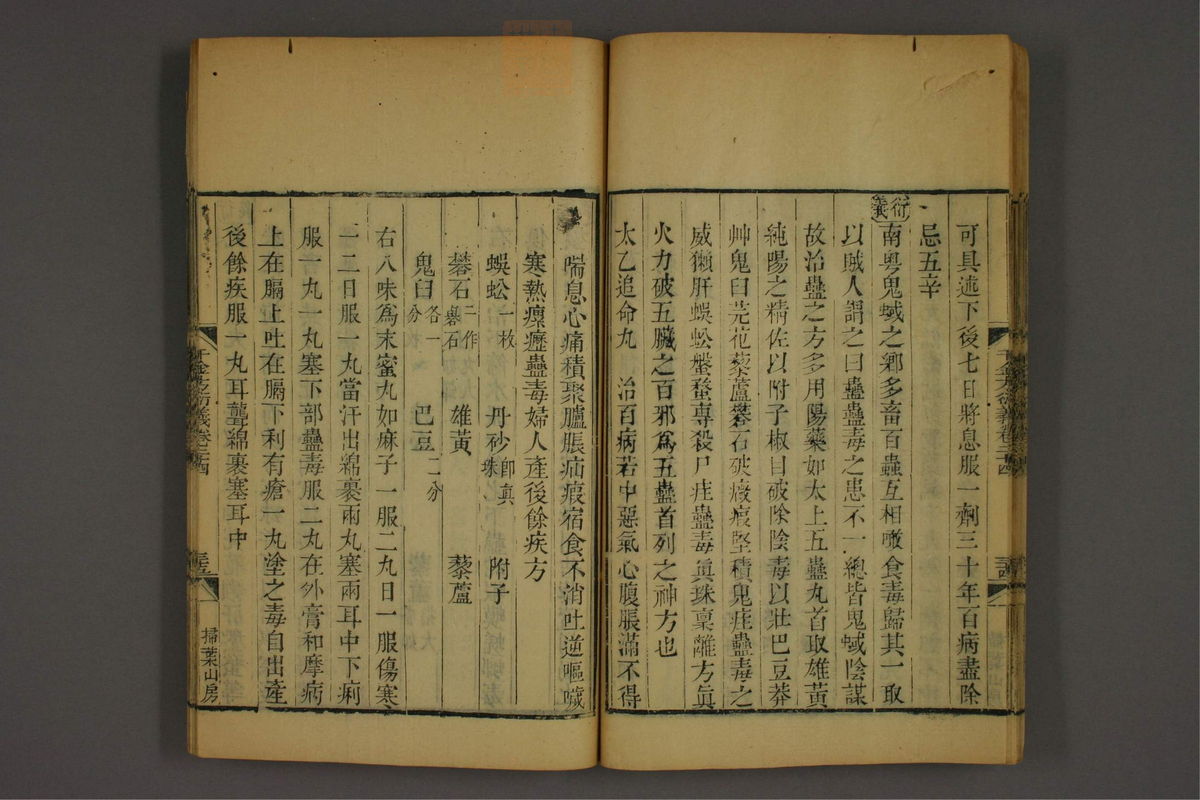 可具述下後七日將息服一劑三十年百病盡除
忌五辛
衍義
南粵鬼蜮之鄉多畜百蟲互相噉食毒歸其一取
以賊人謂之曰蠱蠱毒之患不一總皆鬼蜮陰謀
故治蠱之方多用陽藥如太上五蠱丸首取雄黃
純陽之精佐以附子椒目破除陰毒以壯巴豆莽
艸鬼臼芫花藜蘆礬石破癥瘕堅積鬼疰蠱毒之
威獺肝蜈蚣盤蝥專殺尸疰蠱毒眞珠稟離方眞
火力破五臟之百邪爲五蠱首列之神方也
太乙追命丸 治百病若中惡氣心腹脹滿不得
千金方衍義卷二十四
掃葉山房
喘息心痛積聚臚脹疝瘕宿食不消吐逆嘔噦
寒熱瘰癧蠱毒婦人產後餘疾方
蜈蚣一枚 丹砂卽眞珠 附子
礬石一作礜石 雄黃 藜蘆
鬼臼各一分 巴豆二分
右八味爲末蜜丸如麻子一服二丸日一服傷寒
一二日服一丸當汗出綿裹兩丸塞兩耳中下痢
服一丸一丸塞下部蠱毒服二丸在外膏和摩病
上在膈上吐在膈下利有瘡一丸塗之毒自出產
後餘疾服一丸耳聾綿裹塞耳中
千金方衍義卷二十四
掃葉山房